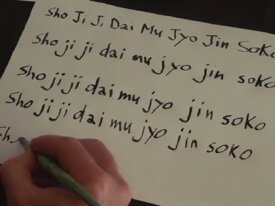 Sho Ji Ji Dai Mu Jyo Jin Soko
Sho ji ji dai mu jyo jin soko
Sho ji ji dai mu jyo jin soko
Sho ji ji dai mu jyo jin soko
Sh